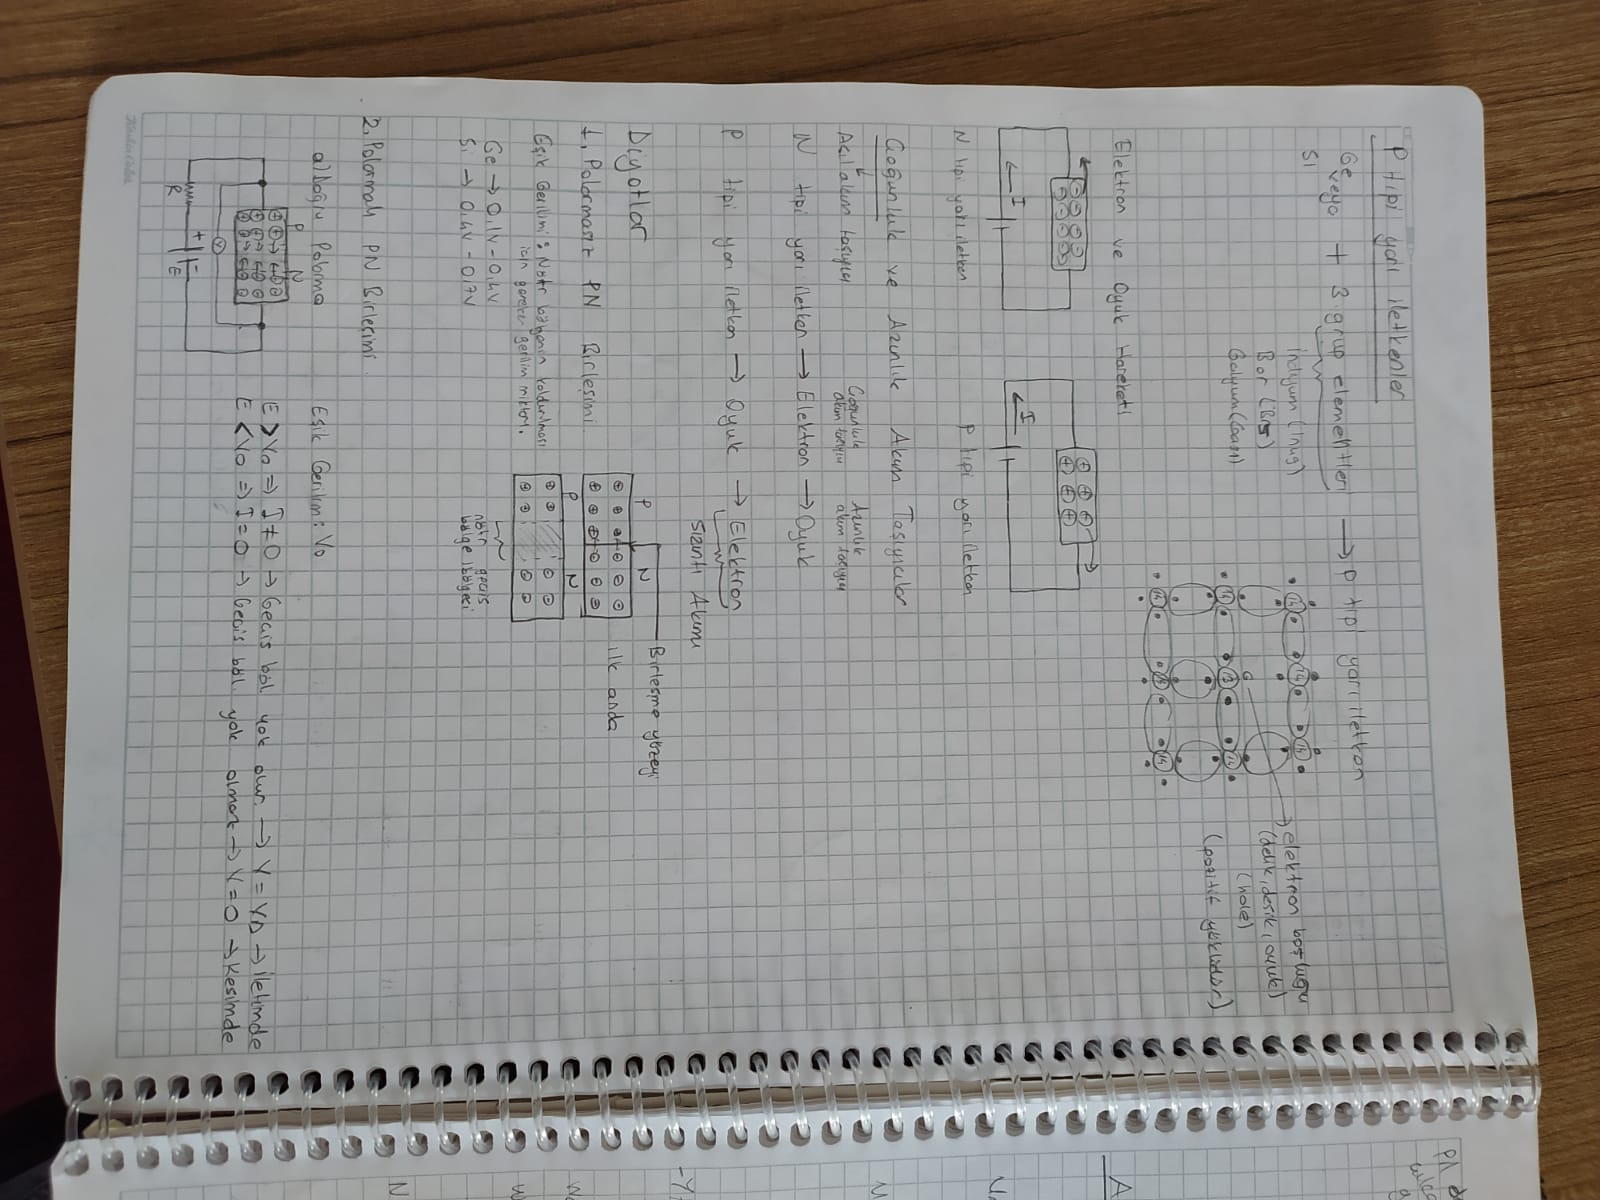 P tipi yarı iletkenler
Ge
veya + 3 grup elementleri → P tipi yarı iletken
Si
İndiyum (In49)
Bor (B5)
Galyum (Ga31)
14 14 14
14 13 14
14 14 14
elektron boşluğu
(delik, deşik, oyuk)
(hole)
(pozitif yüklüdür)
Elektron ve Oyuk Hareketi
I I
N tipi yarı iletken P tipi yarı iletken
Çoğunluk ve Azınlık Akım Taşıyıcılar
Asıl akım taşıyıcı
Çoğunluk Azınlık
akım taşıyıcı akım taşıyıcı
N tipi yarı iletken → Elektron → Oyuk
P tipi yarı iletken → Oyuk → Elektron
Sızıntı Akımı
Diyotlar
P N Birleşme yüzeyi
ilk anda
1. Polarmasız PN Birleşimi
P N
Eşik Gerilimi: Nötr bölgenin kaldırılması
için gereken gerilim miktarı.
Ge → 0.1V - 0.4V
Si → 0.4V - 0.7V
nötr geçiş
bölge bölgesi
2. Polarmalı PN Birleşimi
a) Doğru Polarma Eşik Gerilim: V0
P N
E > V0 ⇒ I ≠ 0 → Geçiş böl. yok olur. → V = VD → İletimde
E < V0 ⇒ I = 0 → Geçiş böl. yok olmaz → V = 0 → Kesimde
V
+ -
R E